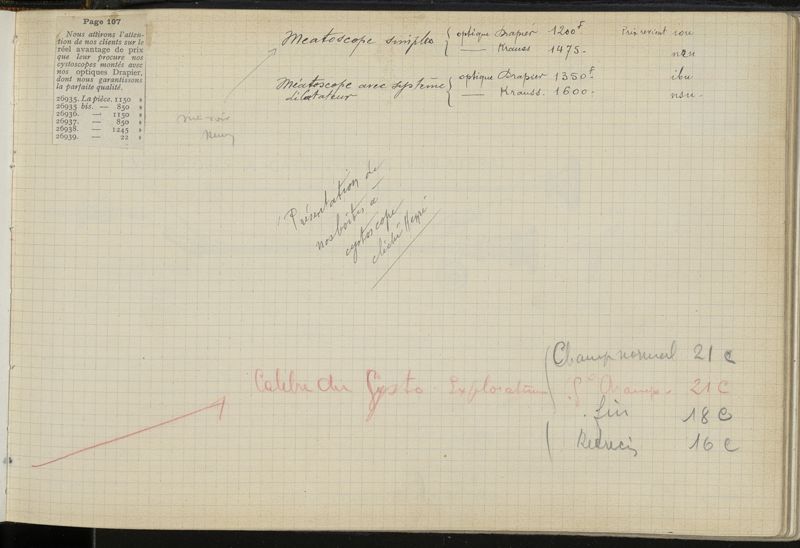 Page 107
Nous attirons l'atten-
tion de nos clients sur le
réel avantage de prix
que leur procure nos
cystoscopes montés avec
nos optiques Drapier,
dont nous garantissons
la parfaite qualité.
26935. La pièce. 1150 »
26935 bis. — 850 »
26936. — 1150 »
26937. — 850 »
26938. — 1245 »
26939. — 22 »
Meatoscope simples { optique Drapier 1200f Prix revient
— Krauss 1475-
Méatoscope avec système dilatateur { optique Drapier 1350f
— Krauss. 1600-
Présentation de
nos boîtes à
cystoscope
cliché
Calibre du Cysto - Explorateur
Champ normal 21 C
Gd Champ - 21 C
fin 18 C
16 C